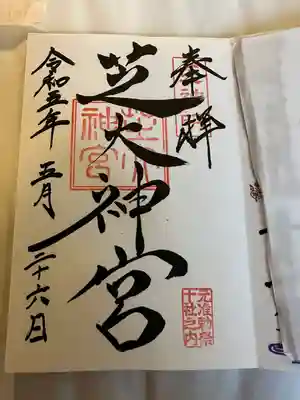 奉拝
芝大神宮
令和五年 五月 二十六日
元准勅祭
十社之内